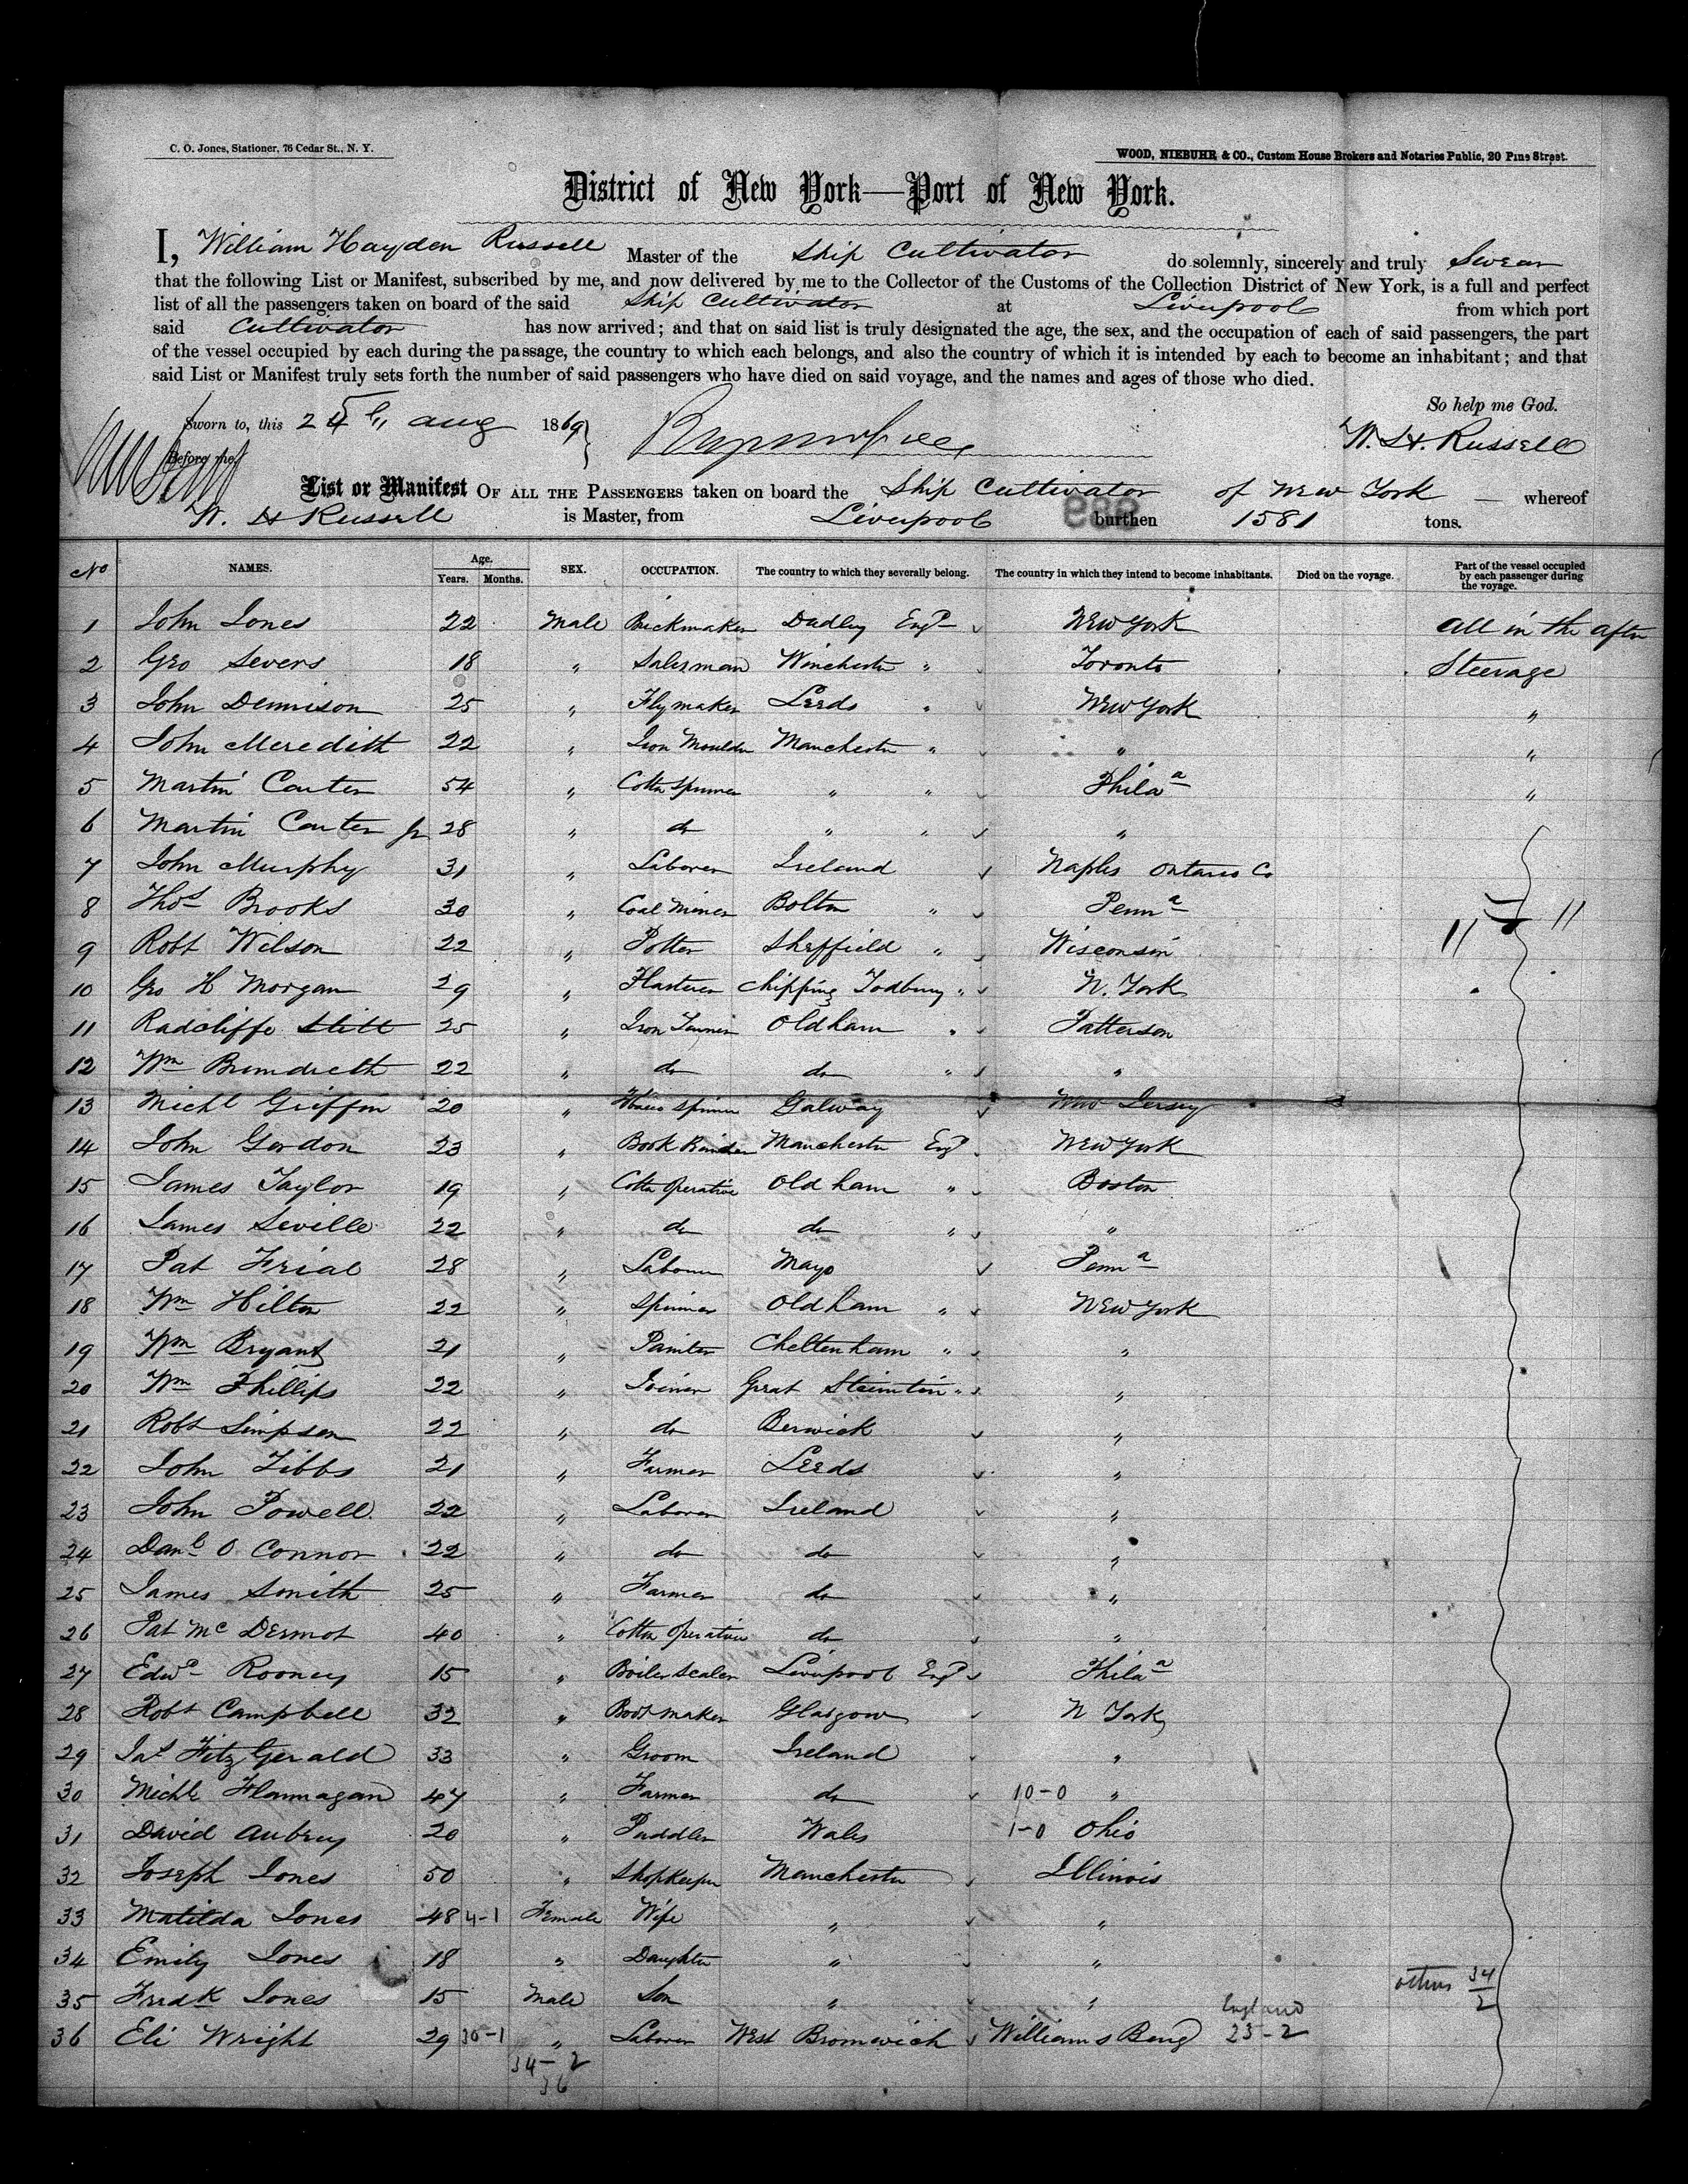 C. O. Jones, Stationer, 76 Cedar St., N. Y.
WOOD, NIEBUHR & CO., Custom House Brokers and Notaries Public, 20 Pine Street.
District of New York—Port of New York.
I, William Hayden Russell Master of the Ship Cultivator do solemnly, sincerely and truly Swear
that the following List or Manifest, subscribed by me, and now delivered by me to the Collector of the Customs of the Collection District of New York, is a full and perfect
list of all the passengers taken on board of the said Ship Cultivator at Liverpool from which port
said Cultivator has now arrived; and that on said list is truly designated the age, the sex, and the occupation of each of said passengers, the part
of the vessel occupied by each during the passage, the country to which each belongs, and also the country of which it is intended by each to become an inhabitant; and that
said List or Manifest truly sets forth the number of said passengers who have died on said voyage, and the names and ages of those who died.
So help me God.
Sworn to, this aug 1869
W. H. Russell
Before me
List or Manifest OF ALL THE PASSENGERS taken on board the Ship Cultivator of New York — whereof
W. H Russell is Master, from Liverpool burthen 1581 tons.
No NAMES. Age. Years. Months. SEX. OCCUPATION. The country to which they severally belong. The country in which they intend to become inhabitants. Died on the voyage. Part of the vessel occupied by each passenger during the voyage.
1 John Jones 22 Male Brickmaker Dudley Engd New York all in the after
2 Geo Severs 18 " Salesman Winchester " Toronto Steerage
3 John Dennison 25 " Flymaker Leeds " New York "
4 John Meredith 22 " Iron Moulder Manchester " " "
5 Martin Carter 54 " Cotton Spinner " " Phila "
6 Martin Carter Jr 28 " do " " "
7 John Murphy 31 " Laborer Ireland Naples Ontario Co
8 Thos Brooks 30 " Coal Miner Bolton " Penna
9 Robt Wilson 22 " Potter Sheffield " Wisconsin
10 Geo H Morgan 29 " Plasterer Chipping Sodbury " N. York
11 Radcliffe Stitt 25 " Iron Turner Oldham " Patterson
12 Wm 22 " do do " "
13 Michl Griffin 20 " Spinner Galway New Jersey
14 John Gordon 23 " Book Binder Manchester Engd New York
15 James Taylor 19 " Cotton Operative Oldham " Boston
16 James Seville 22 " do do " "
17 Pat Frial 28 " Laborer Mayo Penna
18 Wm Hilton 22 " Spinner Oldham " New York
19 Wm Bryant 21 " Painter Cheltenham " "
20 Wm Phillips 22 " Joiner Great " "
21 Robt Simpson 22 " do Berwick "
22 John Tibbs 21 " Farmer Leeds "
23 John Powell 22 " Laborer Ireland "
24 Danl O Connor 22 " do do "
25 James Smith 25 " Farmer do "
26 Pat Mc Dermot 40 " Cotton Operative do "
27 Edwd Rooney 15 " Boiler Scaler Liverpool Engd Phila
28 Robt Campbell 32 " Boot maker Glasgow N York
29 Jas Fitz Gerald 33 " Groom Ireland "
30 Michl Flannagan 47 " Farmer do 10-0 "
31 David Aubrey 20 " Puddler Wales 1-0 Ohio
32 Joseph Jones 50 " Shopkeeper Manchester Illinois
33 Matilda Jones 48 4-1 Female Wife " "
34 Emily Jones 18 " Daughter " "
35 Fredk Jones 15 Male Son " "
others 34
2
England
36 Eli Wright 29 30-1 " Laborer West Bromwich Williams Burg 23-2
34-2
36